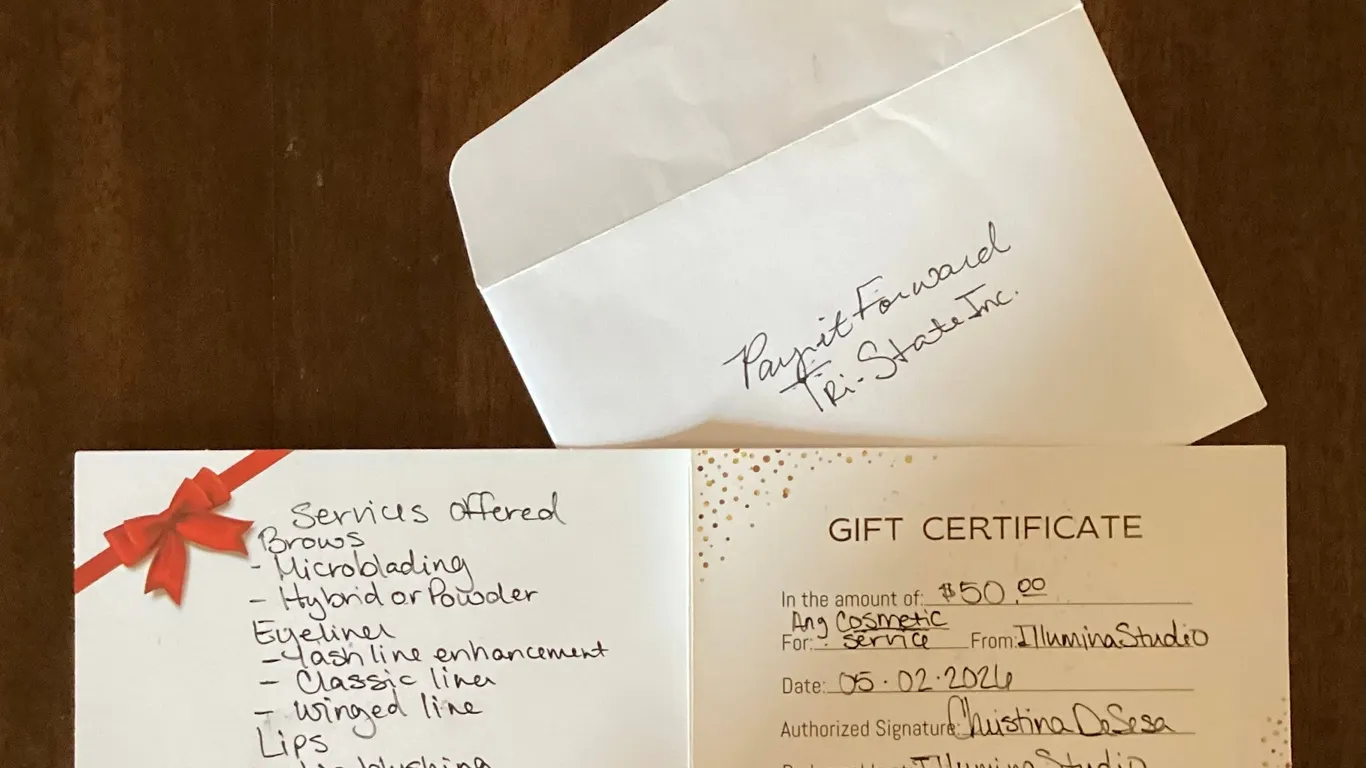 Pay it Forward
Tri-State Inc.
Services Offered
Brows
- Microblading
- Hybrid or Powder
Eyeliner
- Lash line enhancement
- Classic liner
- Winged line
Lips
blushing
GIFT CERTIFICATE
In the amount of: $50.00
Any Cosmetic
For: service From: Illumina Studio
Date: 05.02.2024
Authorized Signature: Christina DeSesa
Illumina Studio